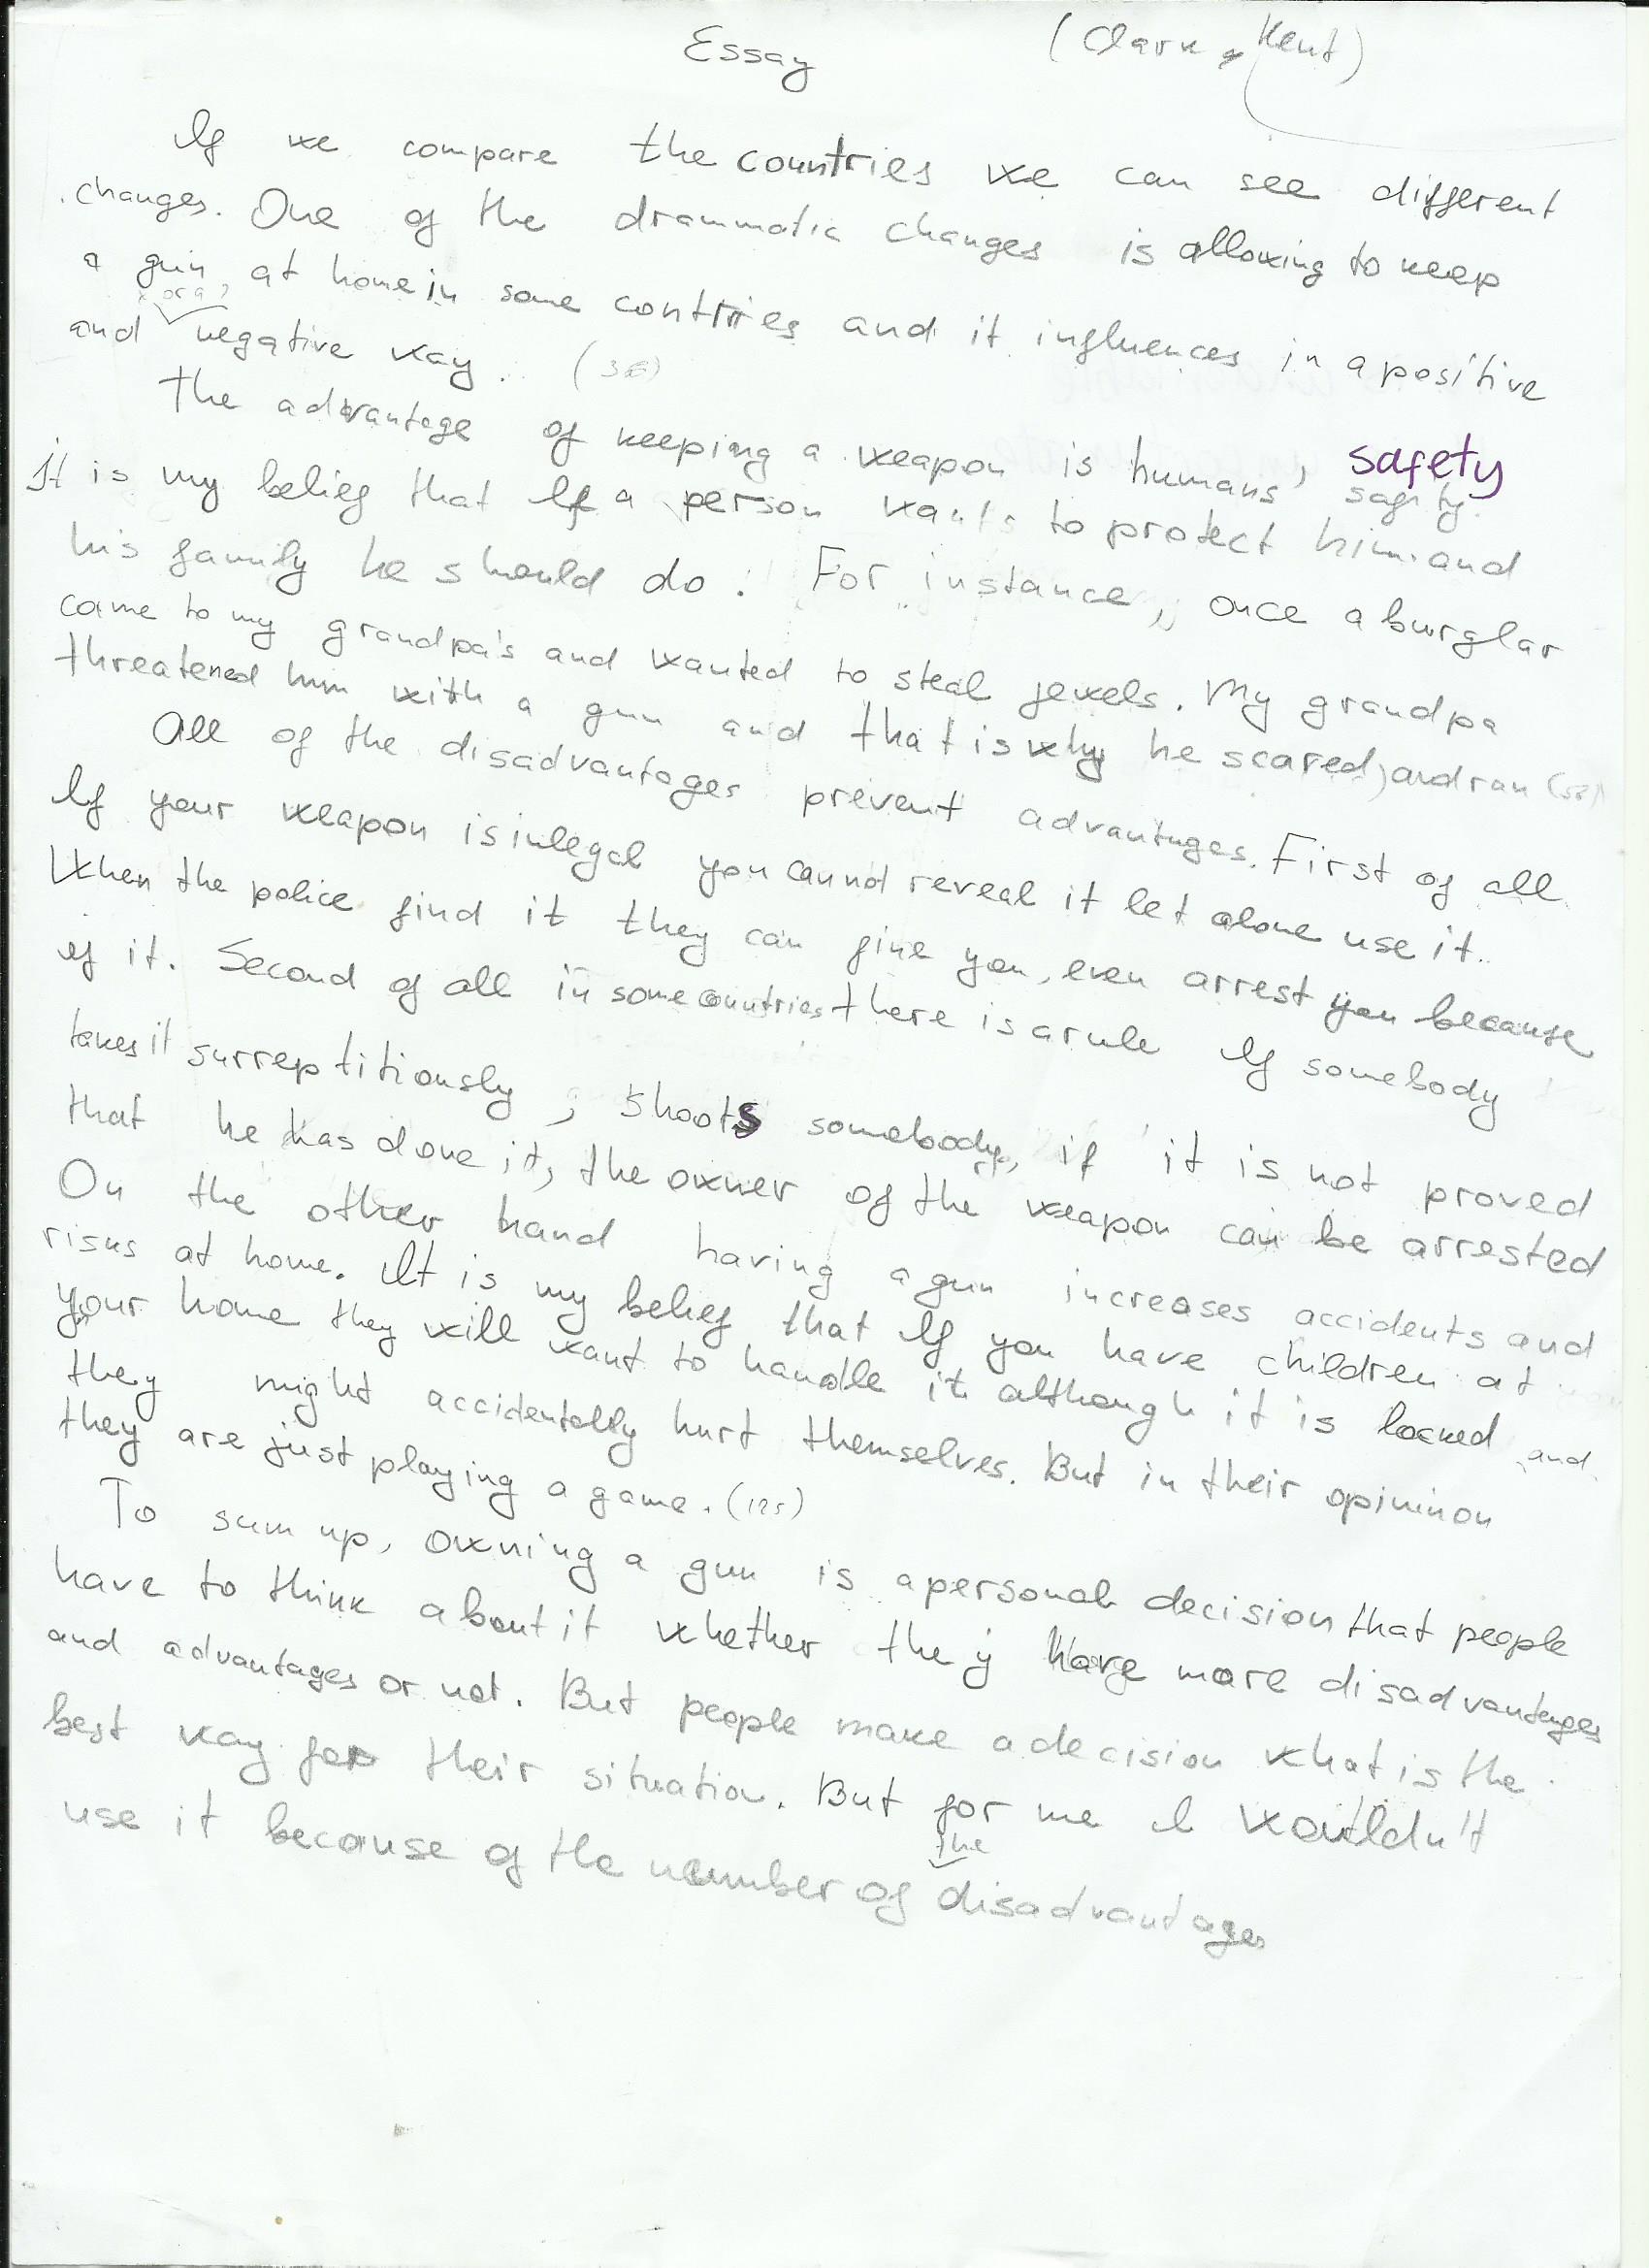 Essay (Clark Kent)
If we compare the countries we can see different
changes. One of the drammatic changes is allowing to keep
a gun at home in some contries and it influences in a positive
or a
and negative way.
The advantage of keeping a weapon is humans' safety
It is my belief that If a person wants to protect him and
his family he should do. For instance, once a burglar
came to my grandpa's and wanted to steal jewels. My grandpa
threatened him with a gun and that is why he scared, and ran
All of the disadvantages prevent advantages. First of all
If your weapon is inlegal you cannot reveal it let alone use it.
When the police find it they can fine you, even arrest you because
of it. Second of all in some countries there is a rule If somebody
takes it surreptitiously, shoots somebody, if it is not proved
that he has done it, the owner of the weapon can be arrested
On the other hand having a gun increases accidents and
risks at home. It is my belief that If you have children at
your home they will want to handle it although it is locked and
they might accidentally hurt themselves. But in their opininon
they are just playing a game. (125)
To sum up, owning a gun is a personal decision that people
have to think about it whether they have more disadvantages
and advantages or not. But people make a decision what is the
best way for their situation. But for me I wouldn't
the
use it because of the number of disadvantages